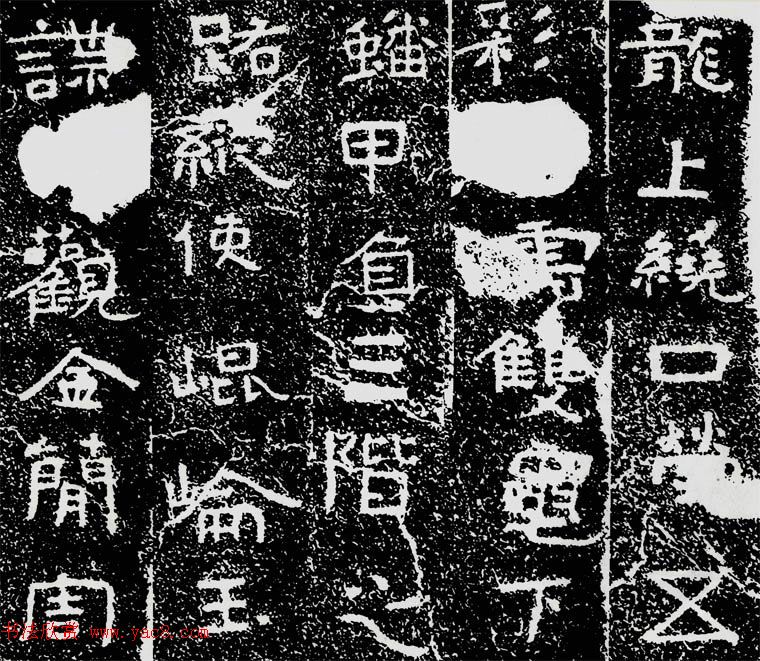 龍上繞口縈五
彩雲雙龜下
蟠甲負三階之
路縱使崐崘玉
諜觀金簡周
书法欣赏 www.yac8.com